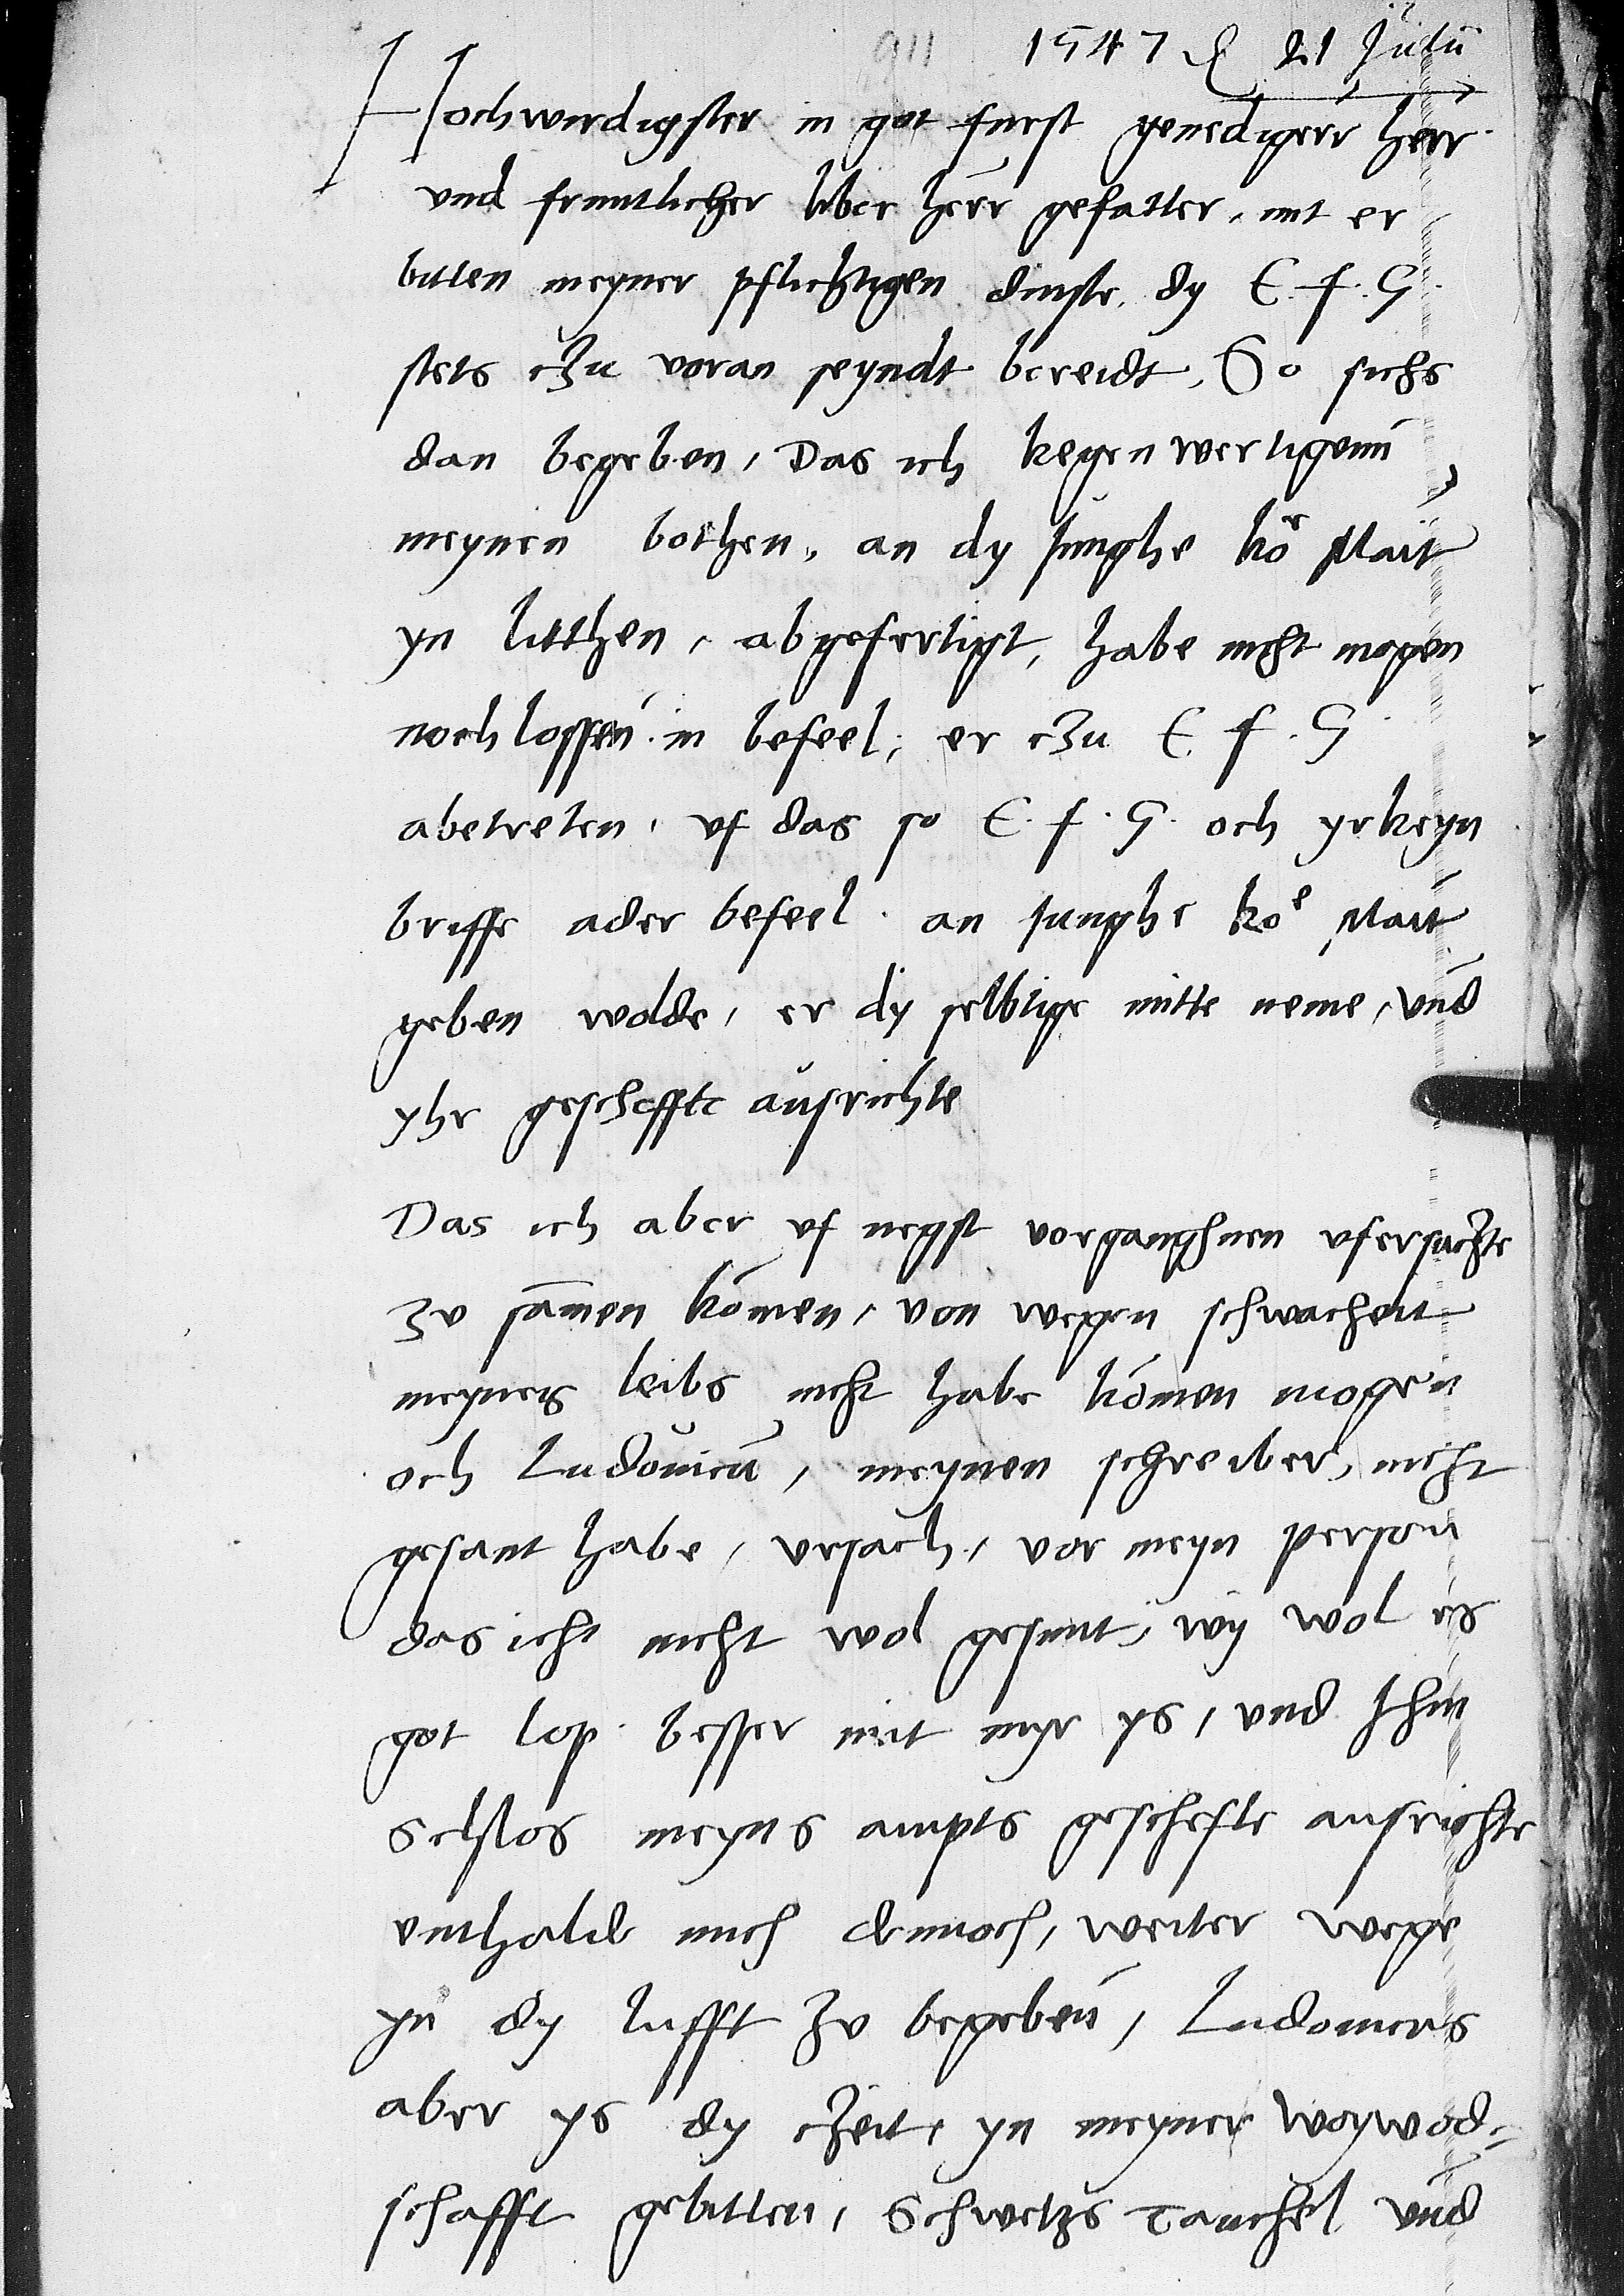 911 1547 d 21 Julii
Hochwirdigster in got furst genediger herr
und fruntlicher liber herr gefatter, mit er
bitten meyner pflichtigen dinste, dy E. f. G.
stets czu voran seyndt bereidt, So sichs
dan begeben, Das ich kegenwertigenn
meynen bothen, an dy Junghe kor Mait
yn litthen, abgefertigt, habe nicht mogen
noch lossen in befeel, er czu E. f. G
abetreten, uf das so E. f. G. och yrkeyn
briffe ader befeel an Junghe koe Mait
geben wolde, er dy selbtige mitte neme, und
yhr gescheffte ausrichte
Das ich aber uf negst vorganghnen ufersachte
zv samen komen, von wegen schwacheit
meynes leibs nicht habe komen mogen
och Ludouicum, meynen schreiber, nicht
gesant habe, ursach, vor meyn person
das icht nicht wol gesunt, wy wol es
got lop besser mit myr ys, und Ihm
Schlos meyns ampts geschefte ausrichte
enthalde mich dennoch, weiter wege
yn dy lufft zv begeben, Ludouicus
aber ys dy czeit yn meyner woywod-
schafft gebitten, Schwetzs Tauchel und